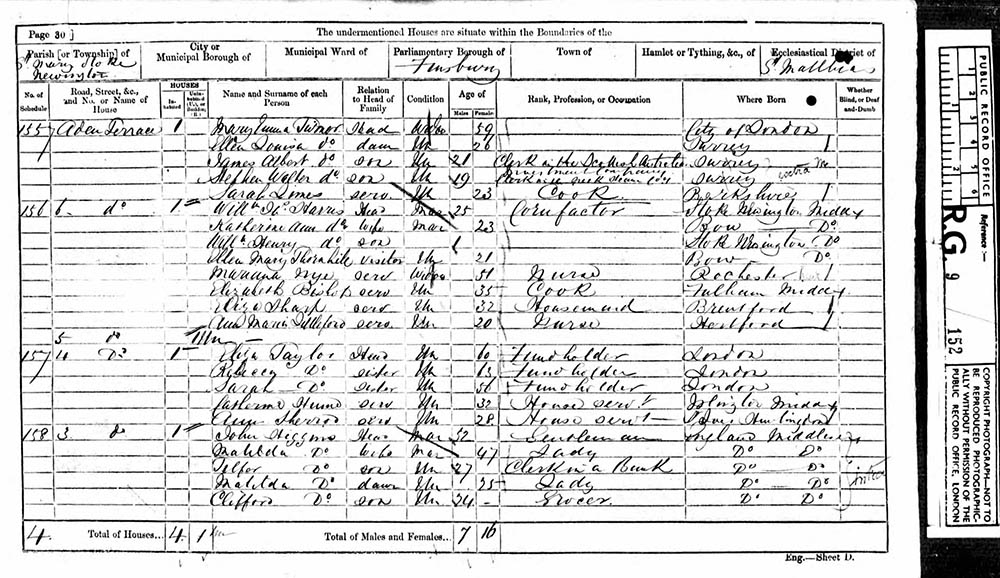 Page 30]
The undermentioned Houses are situate within the Boundaries of the
Parish [or Township] of
St Mary Stoke Newington
City or Municipal Borough of
Municipal Ward of
Parliamentary Borough of
Finsbury
Town of
Hamlet or Tything, &c., of
Ecclesiastical District of
St Matthias
No. of Schedule
Road, Street, &c., and No. or Name of House
HOUSES
In-habited
Name and Surname of each Person
Relation to Head of Family
Condition
Age of
Males
Females
Rank, Profession, or Occupation
Where Born
Whether Blind, or Deaf-and-Dumb
155 7 Aden Terrace 1 Mary Emma Head Widow 59 City of London
Ellen Louisa do daur Un 26 Surrey
James Albert do son Un 21 Clerk in the Surrey
Stephen do son Un 19 Surrey
Sarah serv Un 23 Cook Berkshire
156 6 do 1 Willm Harris Head Mar 25 Corn factor Stoke Newington Middx
Katherine Ann do Wife Mar 23 Bow Do
Willm Henry do son 1 Stoke Newington Do
Ellen Mary Thornhill visitor Un 21 Bow Do
Marianna Nye serv Widow 51 Nurse Rochester
Elizabeth Bishop serv Un 35 Cook Fulham Middx
Eliza Sharp serv Un 32 Housemaid Brentford
Ann Maria serv Un 20 Nurse Hertford
5 do
157 4 Do 1 Eliza Taylor Head Un 60 Fundholder London
Rebecca Do sister Un 63 Fundholder London
Sarah Do sister Un 56 Fundholder London
Catherine serv Un 32 House servt Islington Middx
Ann serv Un 28 House servt
158 3 do 1 John Higgins Head Mar 52 Gentleman England Middlesex
Matilda Do Wife Mar 47 Lady Do Do
Telfor Do son Un 27 Clerk in a Bank Do Do
Matilda Do daur Un 25 Lady Do Do
Clifford Do son Un 24 Grocer Do Do
4 Total of Houses... 4 1 Total of Males and Females... 7 16
Eng.—Sheet D.
PUBLIC RECORD OFFICE
Reference :-
R.G. 9 152
COPYRIGHT PHOTOGRAPH—NOT TO BE REPRODUCED PHOTOGRAPHICALLY WITHOUT PERMISSION OF THE PUBLIC RECORD OFFICE, LONDON